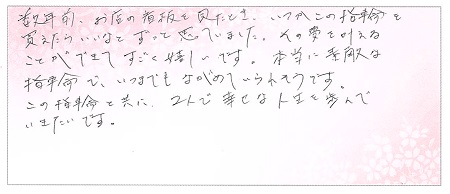 数年前、お店の看板を見たとき、いつかこの指輪を
買えたらいいなとずっと思っていました。その夢を叶える
ことができてすごく嬉しいです。本当に素敵な
指輪で、いつまでもながめていられそうです。
この指輪と共に、2人で幸せな人生を歩んで
いきたいです。